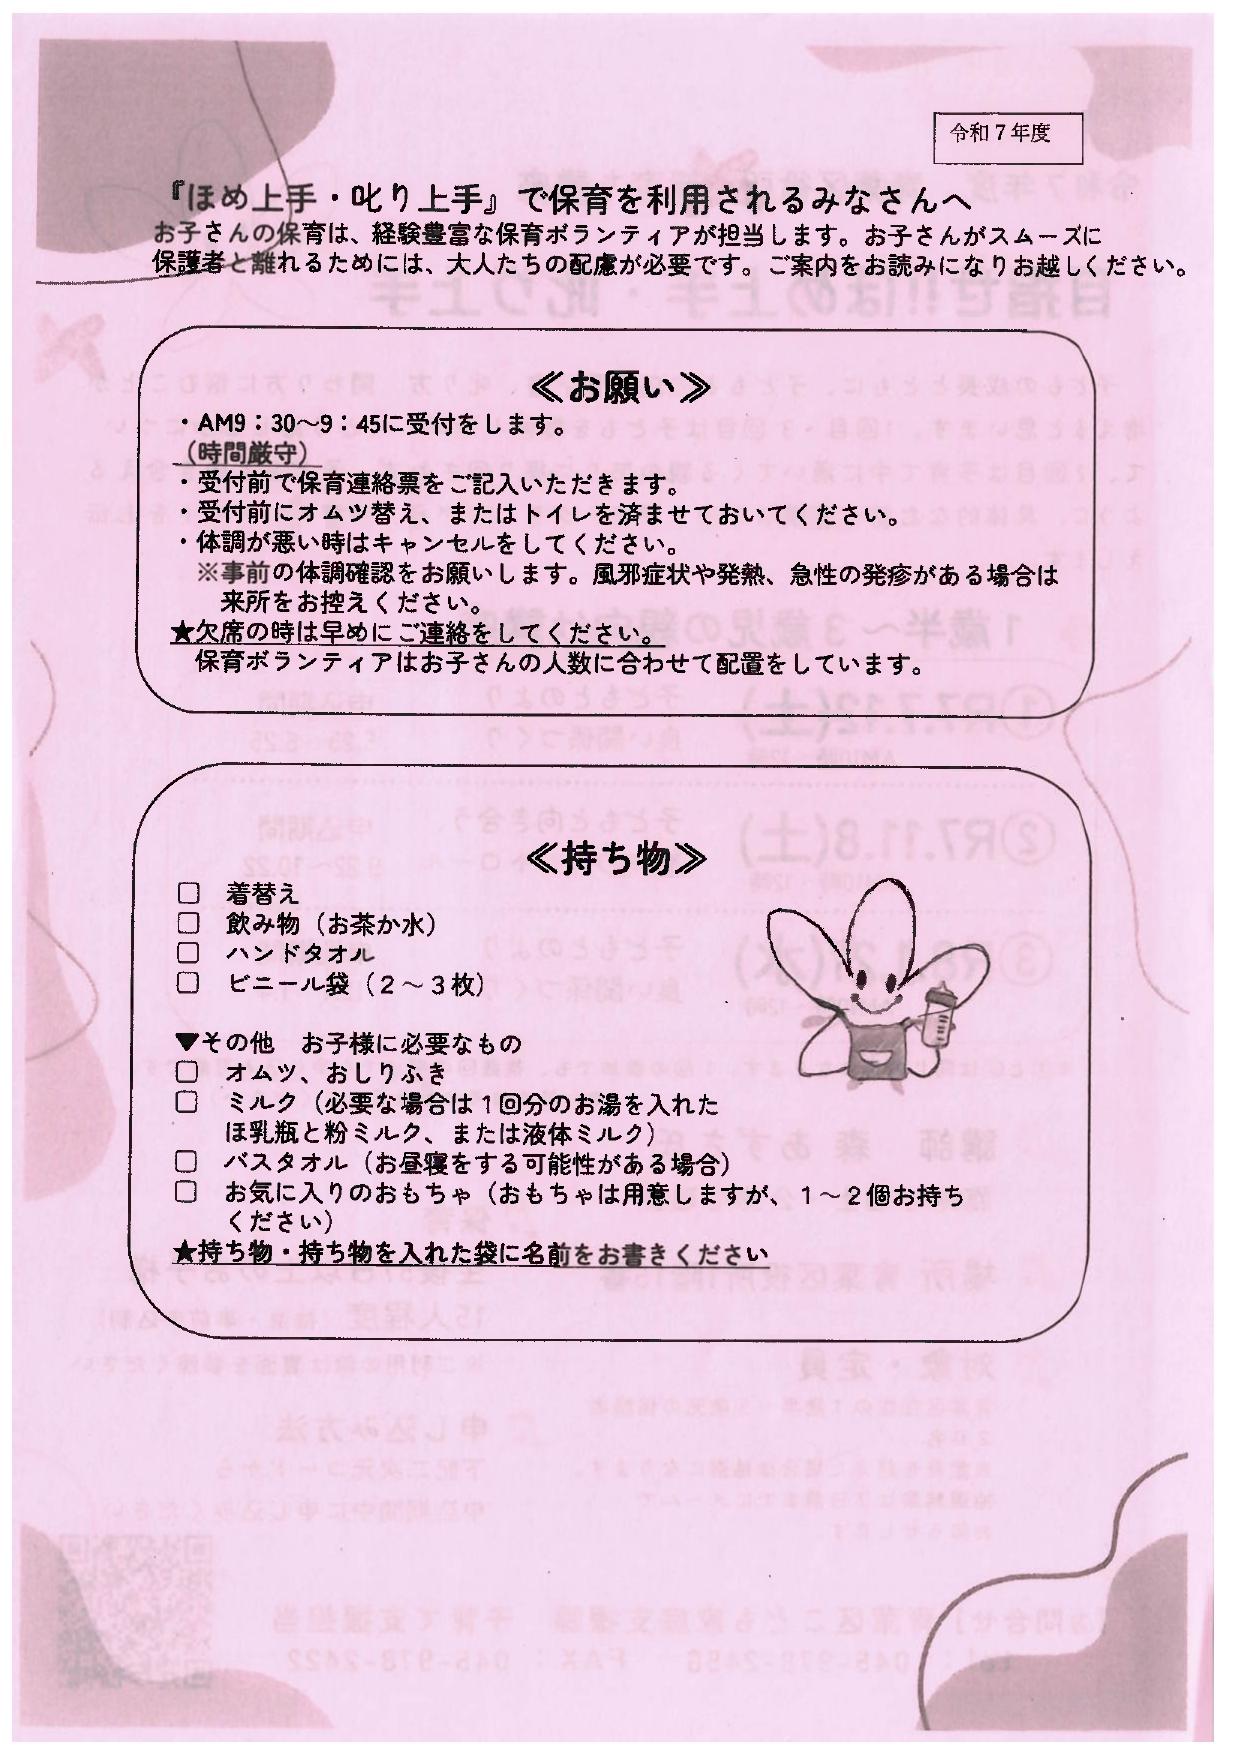 令和７年度
『ほめ上手・叱り上手』で保育を利用されるみなさんへ
お子さんの保育は、経験豊富な保育ボランティアが担当します。お子さんがスムーズに
保護者と離れるためには、大人たちの配慮が必要です。ご案内をお読みになりお越しください。
≪お願い≫
・AM9：30～9：45に受付をします。
（時間厳守）
・受付前で保育連絡票をご記入いただきます。
・受付前にオムツ替え、またはトイレを済ませておいてください。
・体調が悪い時はキャンセルをしてください。
※事前の体調確認をお願いします。風邪症状や発熱、急性の発疹がある場合は
来所をお控えください。
★欠席の時は早めにご連絡をしてください。
保育ボランティアはお子さんの人数に合わせて配置をしています。
≪持ち物≫
□ 着替え
□ 飲み物（お茶か水）
□ ハンドタオル
□ ビニール袋（２～３枚）
▼その他　お子様に必要なもの
□ オムツ、おしりふき
□ ミルク（必要な場合は１回分のお湯を入れた
ほ乳瓶と粉ミルク、または液体ミルク）
□ バスタオル（お昼寝をする可能性がある場合）
□ お気に入りのおもちゃ（おもちゃは用意しますが、１～２個お持ち
ください）
★持ち物・持ち物を入れた袋に名前をお書きください